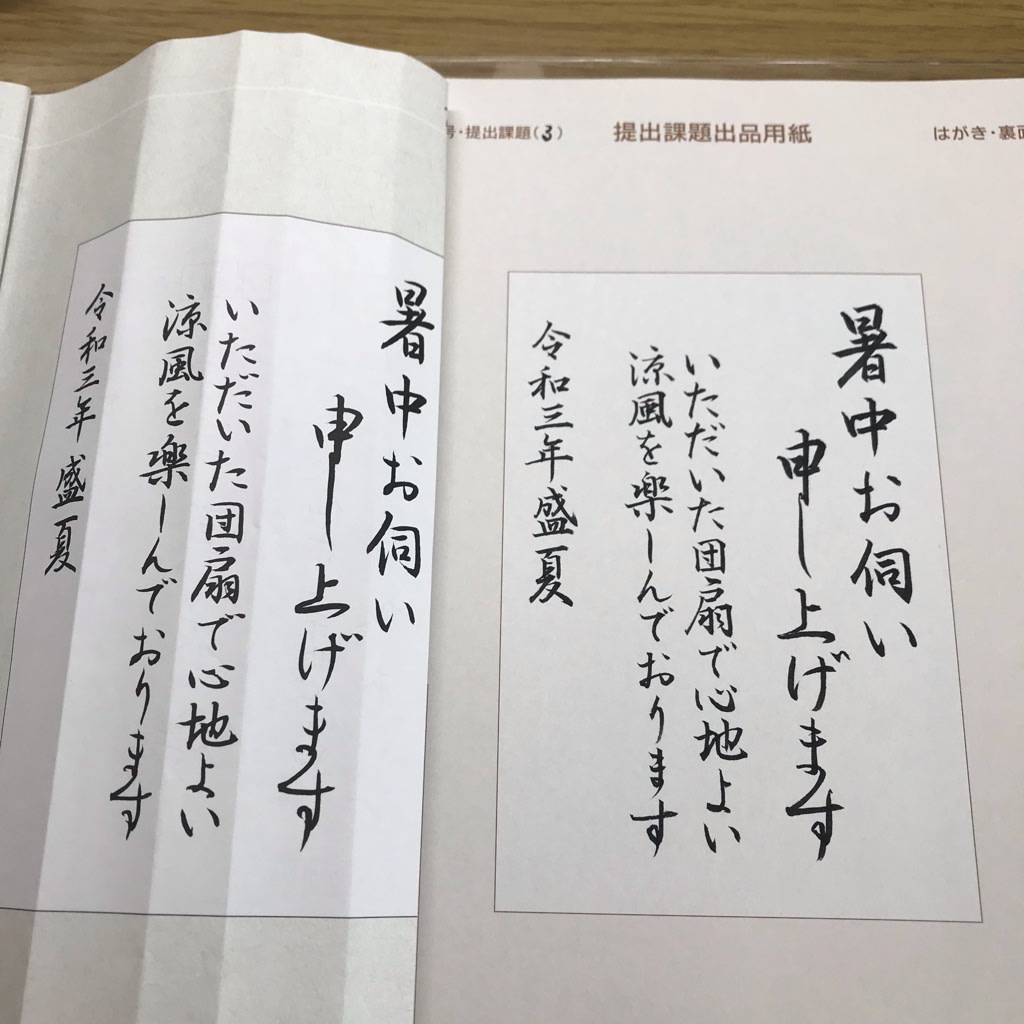 号・提出課題(3)
提出課題出品用紙
はがき・裏面
暑中お伺い
申し上げます
いただいた団扇で心地よい
涼風を楽しんでおります
令和三年盛夏
暑中お伺い
申し上げます
いただいた団扇で心地よい
涼風を楽しんでおります
令和三年 盛夏